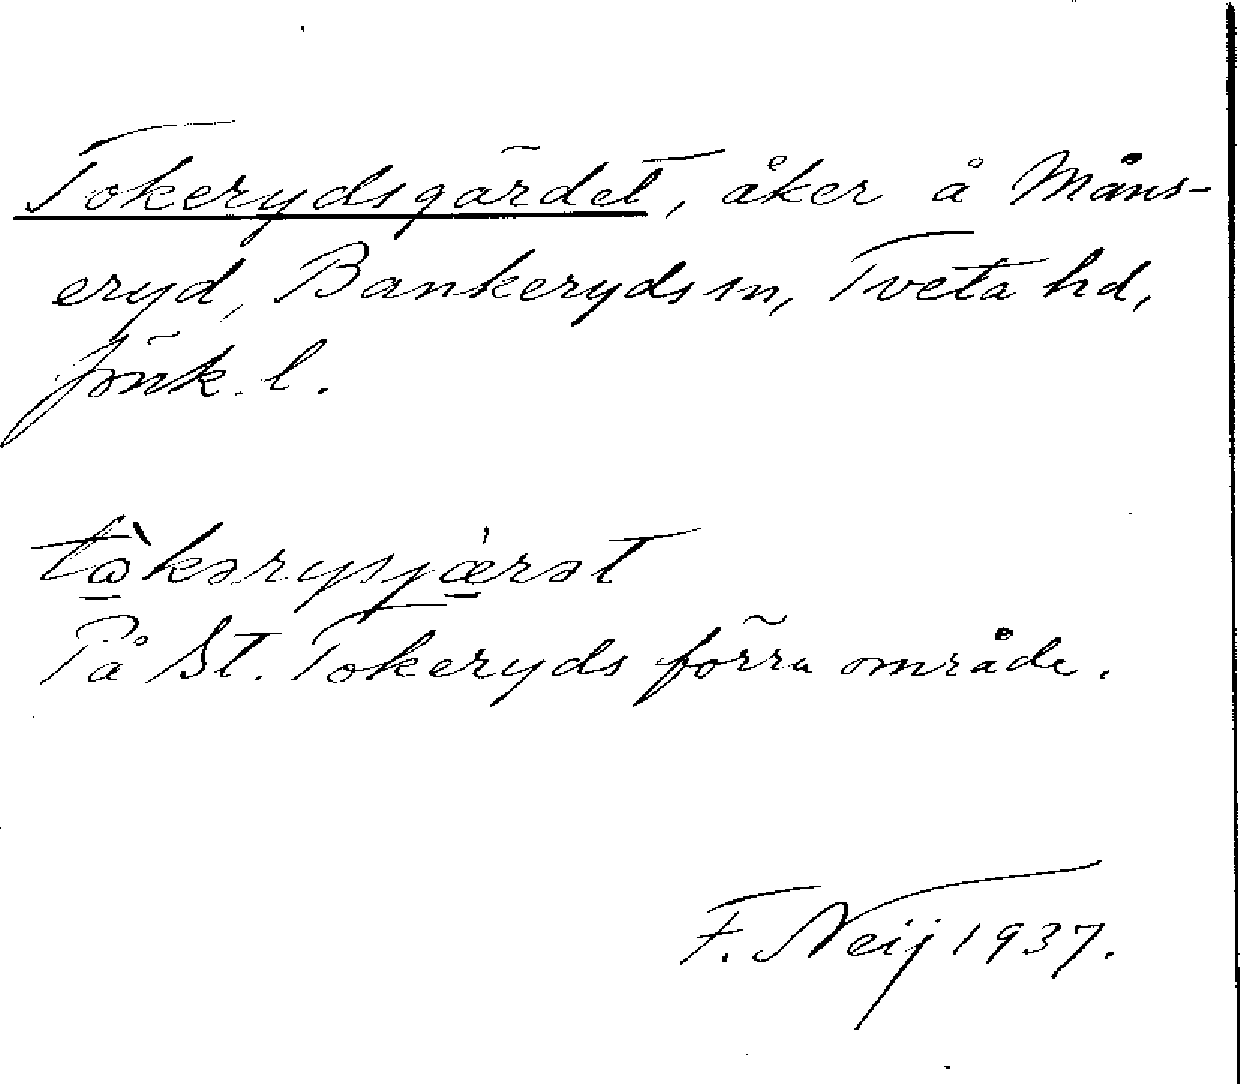 Tokerydsgärdet, åker å Måns-
eryd, Bankeryds sn, Tveta hd,
Jönk. l.
tò̱kərysjǽ̱rət
På St. Tokeryds förra område.
F. Neij 1937.